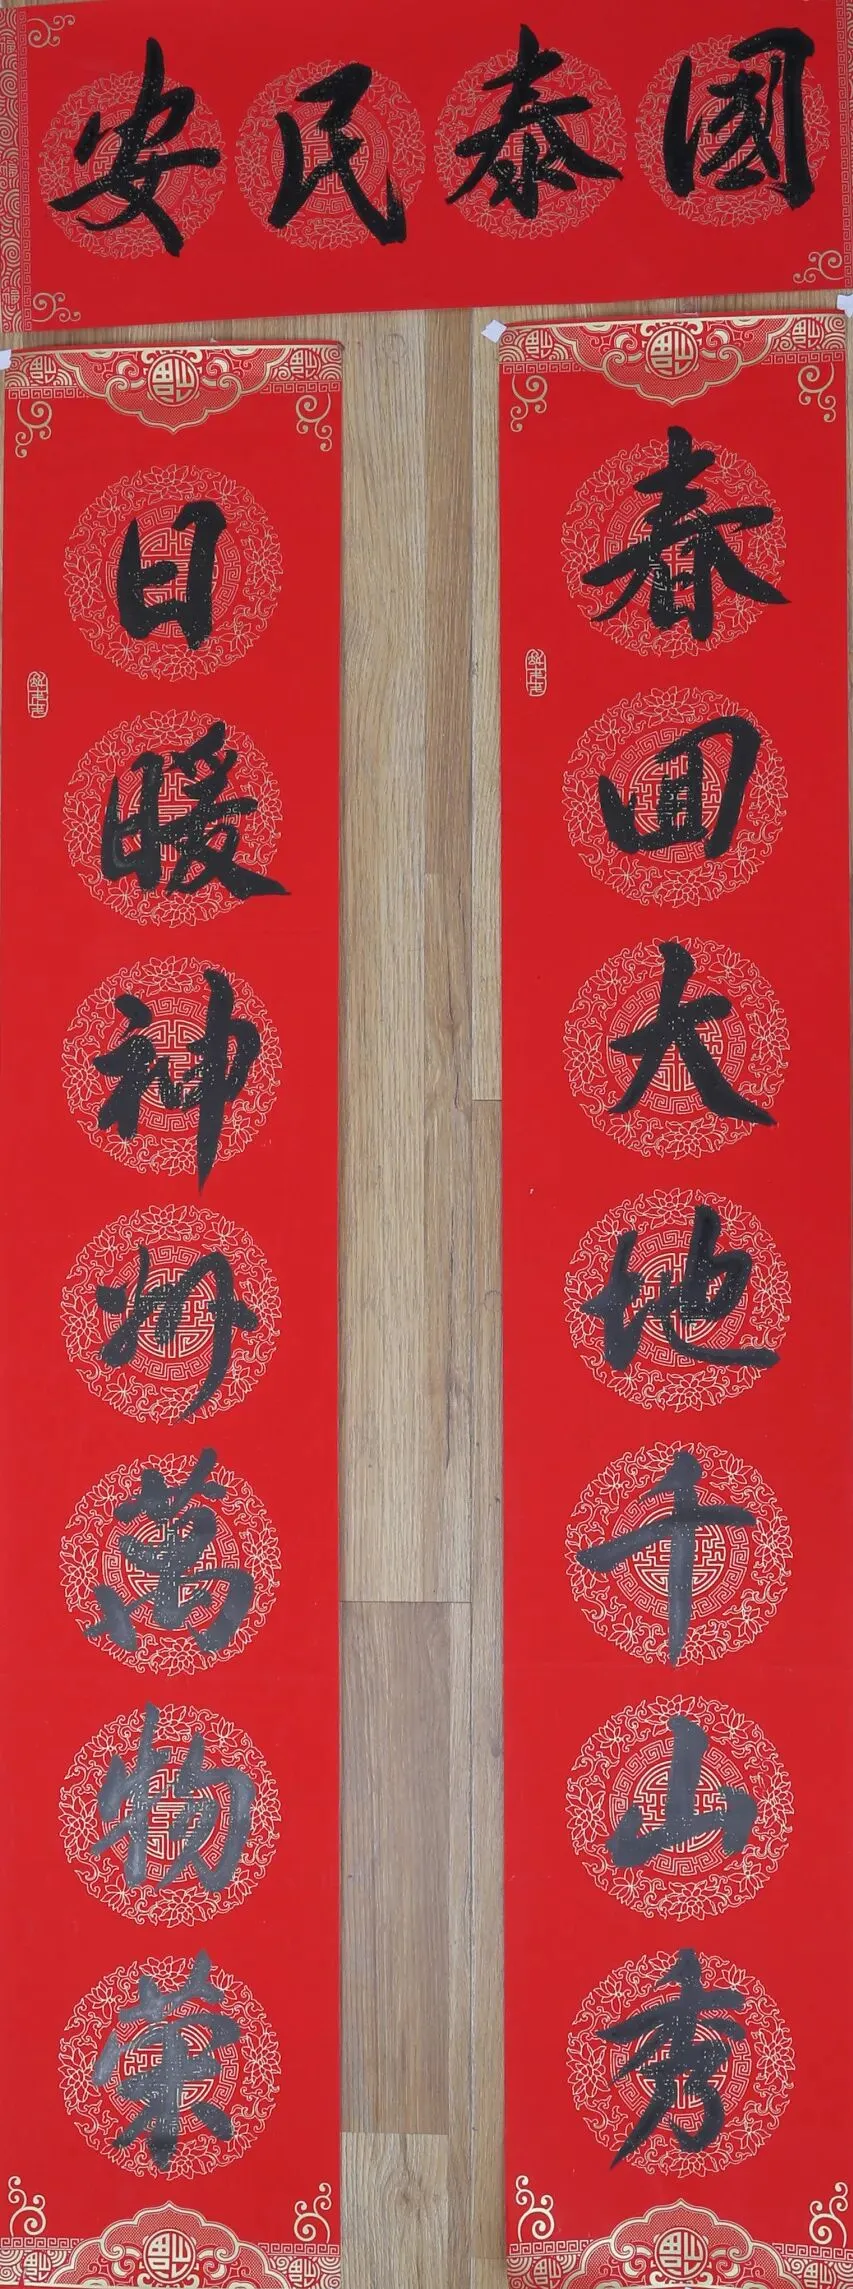 國泰民安
春回大地千山秀
日暖神州萬物榮